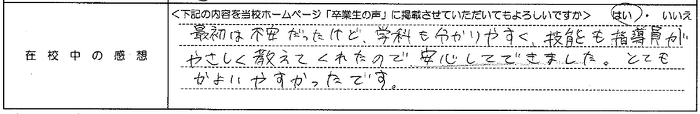 <下記の内容を当校ホームページ「卒業生の声」に掲載させていただいてもよろしいですか> はい ・ いいえ
在校中の感想
最初は不安だったけど、学科も分かりやすく、技能も指導員が
やさしく教えてくれたので安心してできました。とても
かよいやすかったです。